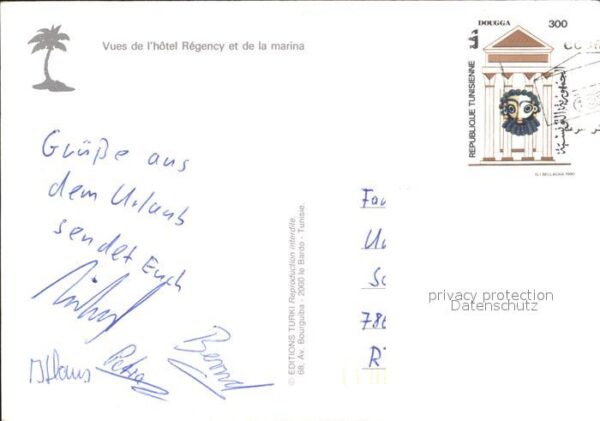 Vues de l'hôtel Régency et de la marina
DOUGGA 300
دقة
REPUBLIQUE TUNISIENNE
الجمهورية التونسية
Grüße aus
dem Urlaub
sendet Euch
Bernd
Klaus Petra
© EDITIONS TURKI Reproduction interdite.
68, Av. Bourguiba - 2000 le Bardo - Tunisie.
Fa
U
S
786
R
privacy protection
Datenschutz